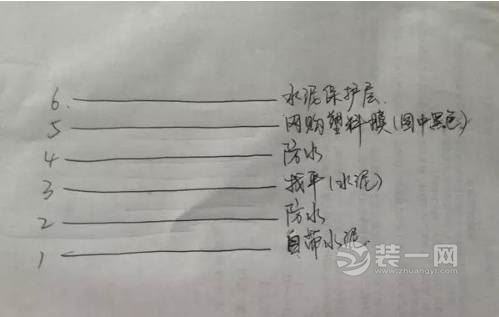 6. 水泥保护层.
5 网购塑料膜(图中黑色)
4 防水
3 找平(水泥)
2 防水
1 自带水泥.
装一网
www.zhuangyi.com